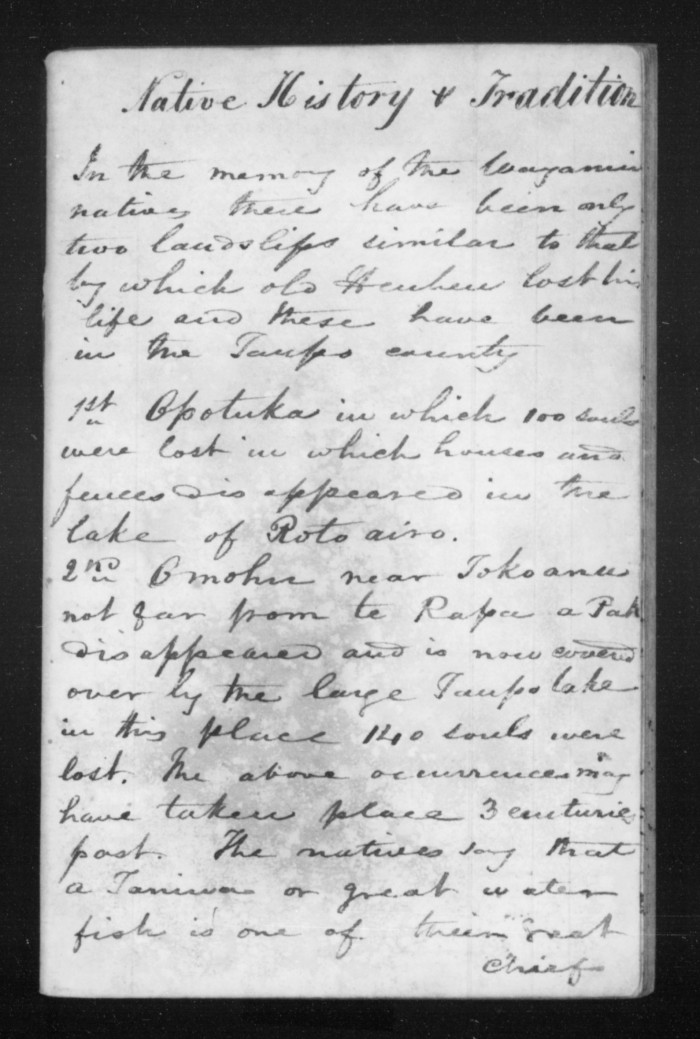 Native History & Tradition
In the memory of the
natives there have been only
two landslips similar to that
by which old Heuheu lost his
life and these have been
in the Taupo county
1st Opotuka in which 100 souls
were lost in which houses and
fences disappeared in the
lake of Roto airo.
2nd Omohu near Tokoanu
not far from te Rapa a Pah
disappeared and is now covered
over by the large Taupo lake
in this place 140 souls were
lost. The above occurrences may
have taken place 3 centuries
past. The natives say that
a Taniwa or great water
fish is one of their great
chief